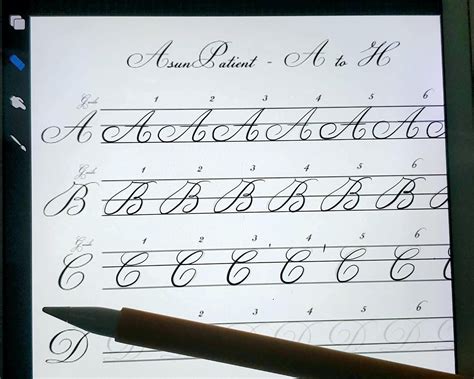 AsunPatient - A to H
Guide 1 2 3 4 5 6
A A A A A A A A
Guide 1 2 3 4 5 6
B B B B B B B B
Guide 1 2 3 4 5 6
C C C C C C C C
2 3 4 5 6
D D D D D D D D